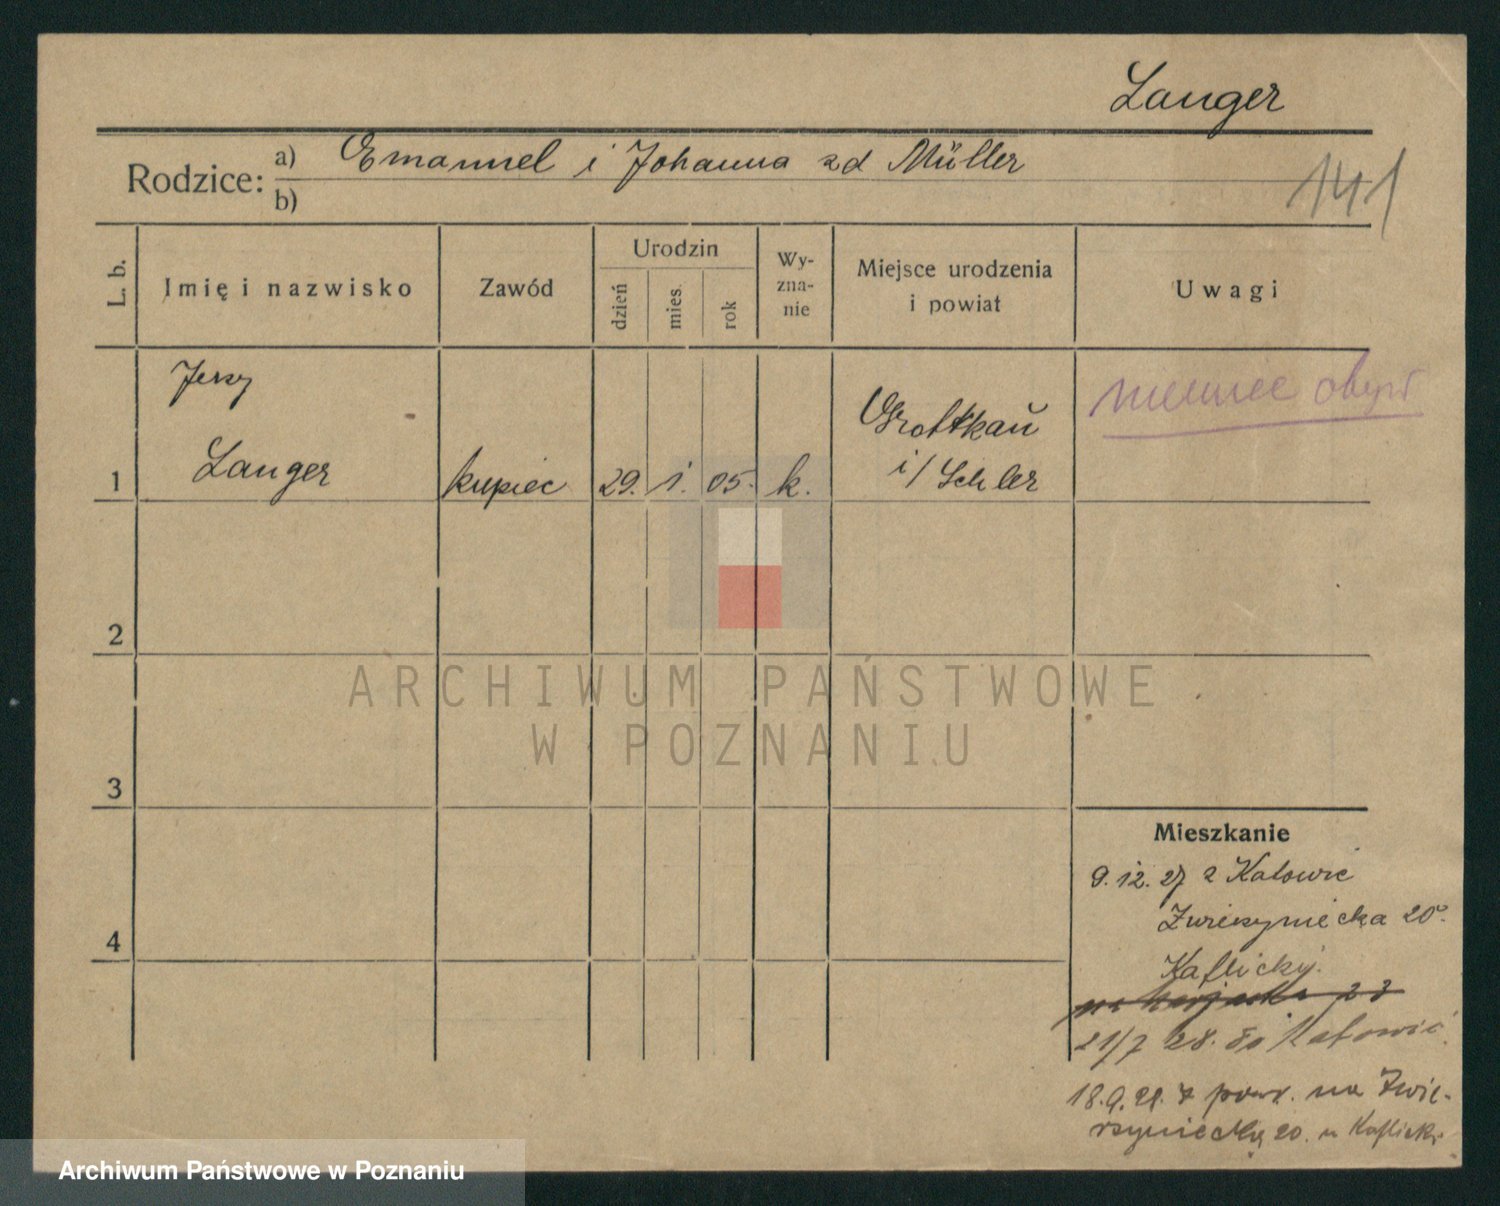 Langer
Rodzice:
a) Emanuel i Johanna zd Müller
b)
141
L. b.
Imię i nazwisko
Zawód
Urodzin
dzień
mies.
rok
Wy-
zna-
nie
Miejsce urodzenia
i powiat
Uwagi
Jerzy
Langer
1
kupiec
29. 1. 05.
k.
Grottkau
i/ Schles
niemiec obyw
2
3
4
Mieszkanie
9. 12. 27 z Katowic
Zwierzyniecka 20.
Kaflicky.
21/7 28. do Katowic
18.9.28. z powr. na Zwie-
rzyniecką 20. u Kaflicki
ARCHIWUM PAŃSTWOWE
W POZNANIU
Archiwum Państwowe w Poznaniu